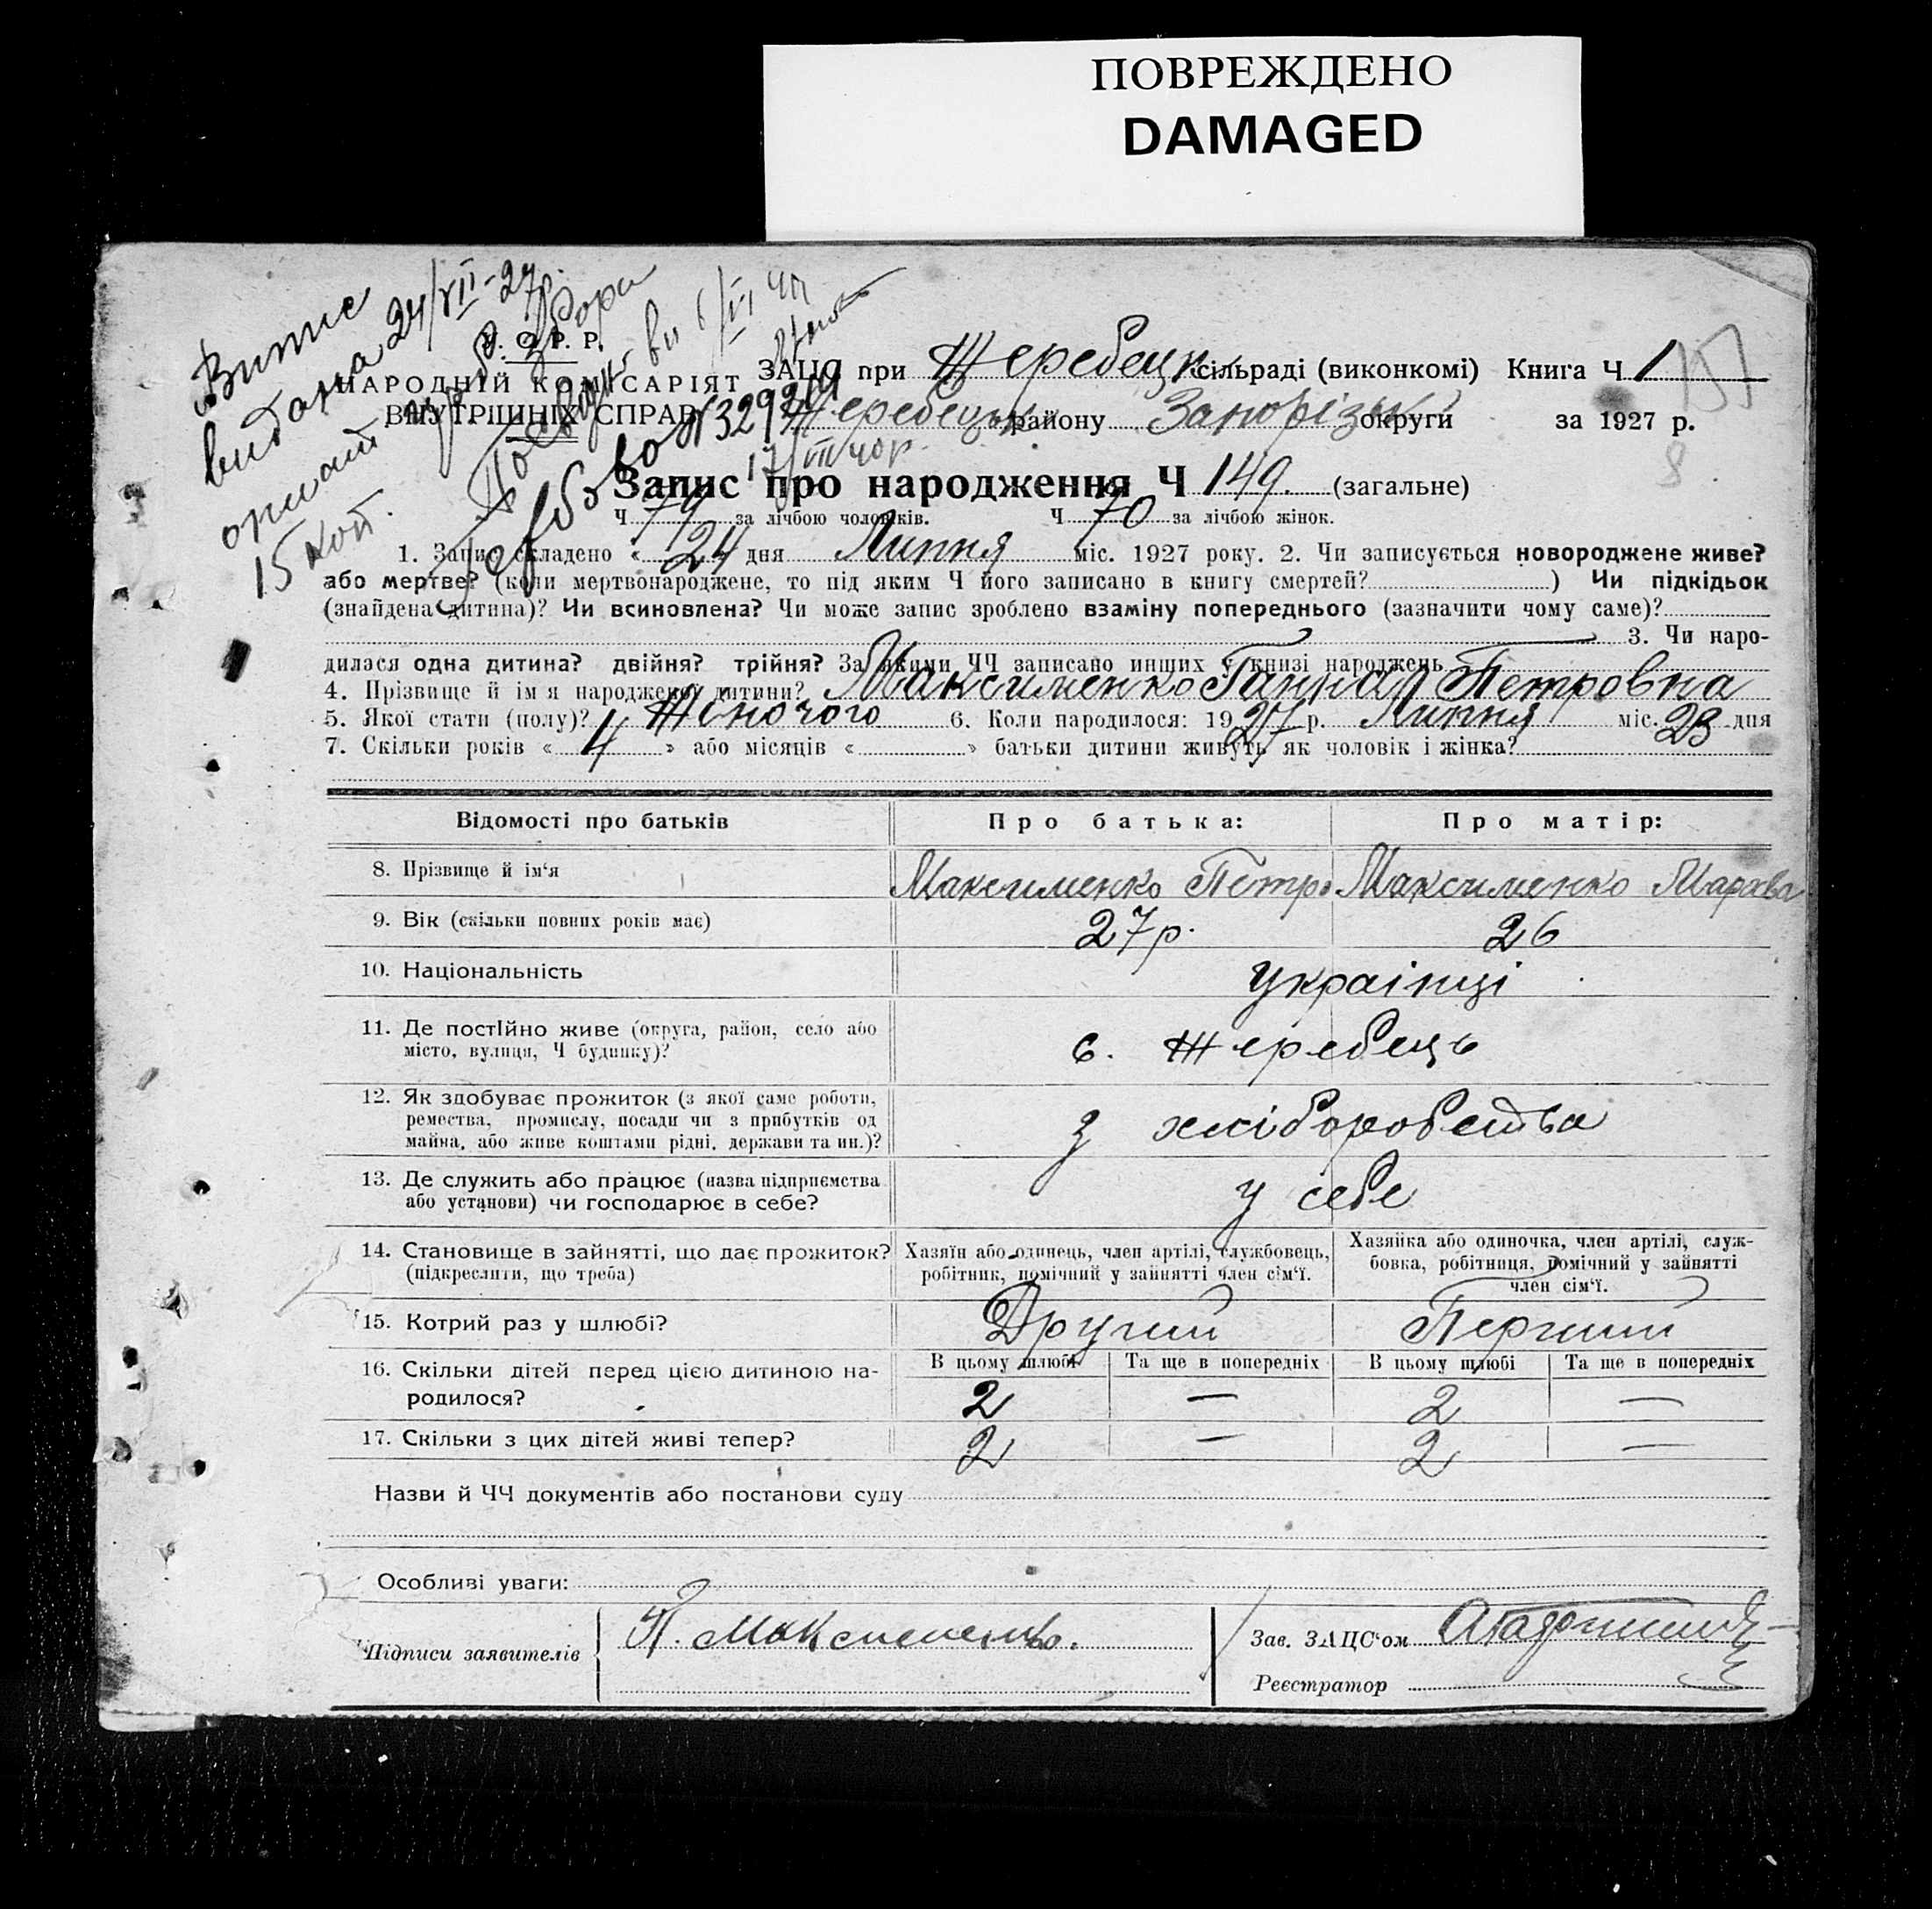 ПОВРЕЖДЕНО
DAMAGED
Витяг
видана 24/VII-27р.
15 коп.
У. С. Р. Р.
НАРОДНІЙ КОМІСАРІЯТ
ВНУТРІШНІХ СПРАВ
ЗАЦС при Жеребецк сільраді (виконкомі) Книга Ч 1
Жеребецьк району Запорізьк округи за 1927 р.
№ 329219
17/III 40р.
Запис про народження Ч 149. (загальне)
Ч 79 за лічбою чоловіків. Ч 70 за лічбою жінок.
1. Запис складено « 24 дня Липня міс. 1927 року. 2. Чи записується новороджене живе?
або мертве? (коли мертвонароджене, то під яким Ч його записано в книгу смертей? ) Чи підкідьок
(знайдена дитина)? Чи всиновлена? Чи може запис зроблено взаміну попереднього (зазначити чому саме)?
3. Чи наро-
дилася одна дитина? двійня? трійня? За якими ЧЧ записано инших у книзі народжень
4. Прізвище й ім'я народженої дитини? Максименко Ганна Петровна
5. Якої стати (полу)? Жіночого 6. Коли народилося: 1927 р. Липня міс. 23 дня
7. Скільки років « 4 » або місяців « » батьки дитини живуть як чоловік і жінка?
Відомості про батьків Про батька: Про матір:
8. Прізвище й ім'я Максименко Петро Максименко
9. Вік (скільки повних років має) 27р. 26
10. Національність українці
11. Де постійно живе (округа, район, село або с. Жеребець
місто, вулиця, Ч будинку)?
12. Як здобуває прожиток (з якої саме роботи,
ремества, промислу, посади чи з прибутків од з хліборобства
майна, або живе коштами рідні, держави та ин.)?
13. Де служить або працює (назва підприємства у себе
або установи) чи господарює в себе?
14. Становище в зайнятті, що дає прожиток? Хазяїн або одинець, член артілі, службовець, Хазяйка або одиночка, член артілі, служ-
(підкреслити, що треба) робітник, помічний у зайнятті член сім'ї. бовка, робітниця, помічний у зайнятті
член сім'ї.
15. Котрий раз у шлюбі? Другий Перший
16. Скільки дітей перед цією дитиною на- В цьому шлюбі Та ще в попередніх В цьому шлюбі Та ще в попередніх
родилося? 2 — 2 —
17. Скільки з цих дітей живі тепер? 2 — 2 —
Назви й ЧЧ документів або постанови суду
Особливі уваги:
Підписи заявителів П. Максименко. Зав. ЗАЦС'ом
Реєстратор